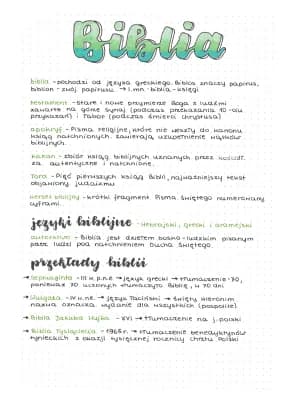 Biblia
biblia - pochodzi od języka greckiego. Biblos znaczy papirus,
biblion - zwój papirusu → l.mn. - biblia - księgi
testament - stare i nowe przymierze Boga z ludźmi
zawarte na górze Synaj (podczas przekazania 10-ciu
przykazań) i Tabor (podczas śmierci chrystusa)
apokryf - Pisma religijne, które nie weszły do kanonu
ksiąg natchnionych. zawierają uzupełnienie wątków
biblijnych.
kanon - zbiór ksiąg biblijnych uznanych przez kościół
za autentyczne i natchnione.
Tora - Pięć pierwszych ksiąg Biblii, najważniejszy tekst
objawiony judaizmu
werset biblijny - krótki fragment Pisma Świętego numerowany
cyframi.
języki biblijne - hebrajski, grecki i aramejski
autorstwo - Biblia jest dziełem bosko-ludzkim pisanym
przez ludzi pod natchnieniem Ducha Świętego.
przekłady biblii
→ Septuaginta - III w. p.n.e → język grecki → tłumaczenie 70,
ponieważ 70 uczonych tłumaczyło Biblię, w 70 dni
→ Wulgata - IV w. n.e. → język łaciński → święty Hieronim
nazwa oznacza wydanie dla wszystkich (pospolite)
→ Biblia Jakuba Wujka - XVI → tłumaczenie na j. polski
→ Biblia Tysiąclecia - 1965r. → tłumaczenie benedyktynów
tynieckich z okazji tysięcznej rocznicy chrztu Polski